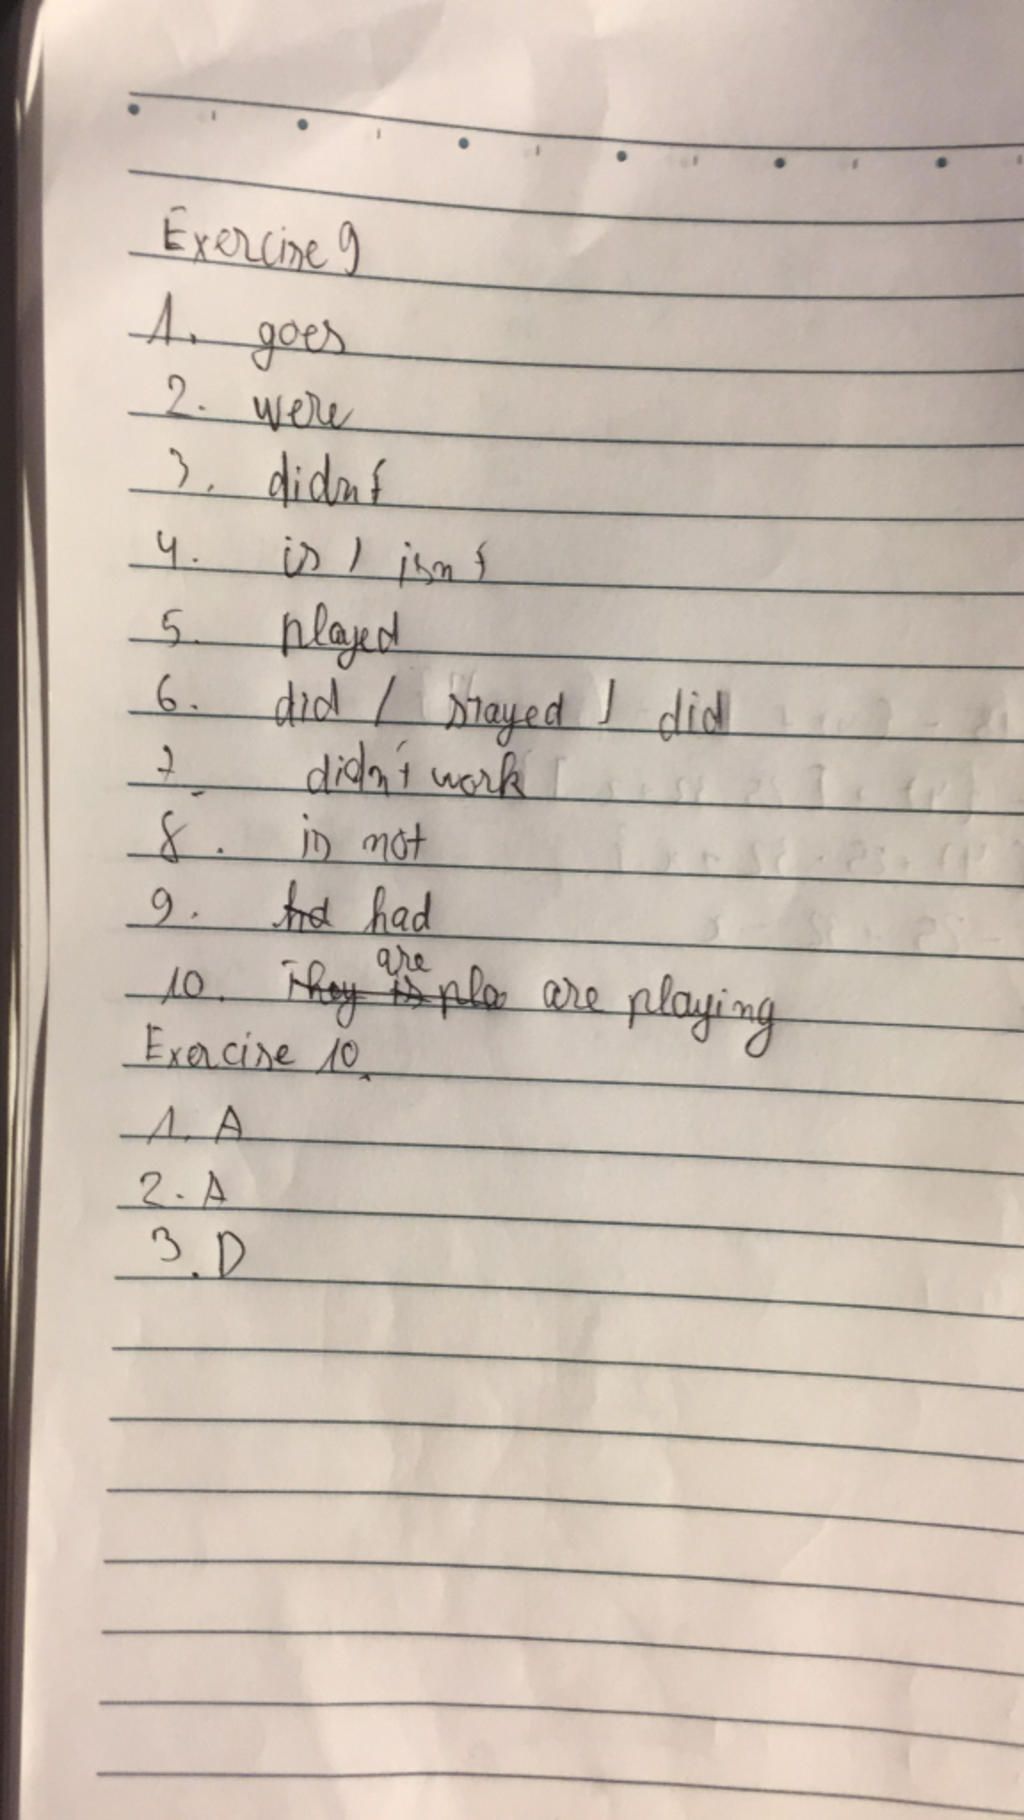 Exercise 9
1. goes
2. were
3. didnt
4. is / isnt
5. played
6. did / stayed / did
7. didn't work
8. is not
9. had
10. They is are pla are playing
Exercise 10.
1. A
2. A
3. D